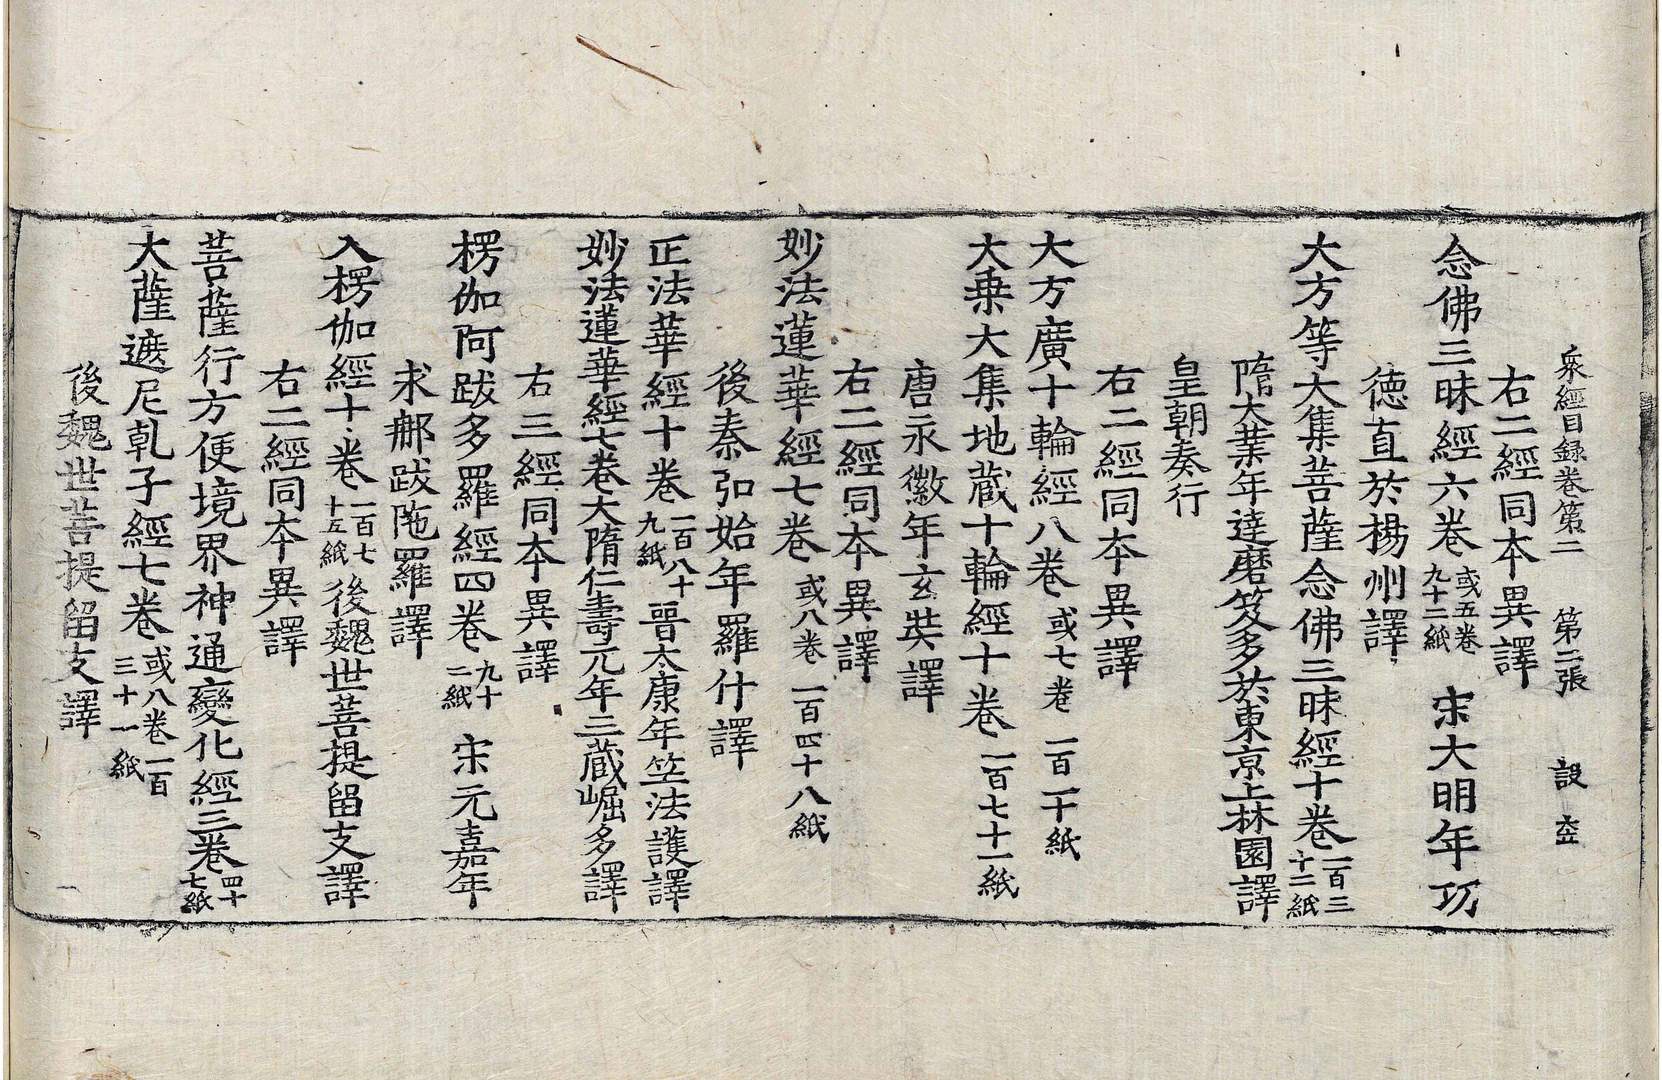 衆經目録卷第二　第二張　設𡘋
右二經同本異譯
念佛三昧經六卷或五卷九十二紙　宋大明年㓛
德直於楊州譯
大方等大集菩薩念佛三昧經十卷一百三十二紙
隋大業年達磨笈多於東京上林園譯
皇朝奏行
右二經同本異譯
大方廣十輪經八卷或七卷一百二十紙
大乗大集地藏十輪經十卷一百七十一紙
唐永徽年玄奘譯
右二經同本異譯
妙法蓮華經七卷或八卷一百四十八紙
後秦弘始年羅什譯
正法華經十卷一百八十九紙晉太康年竺法護譯
妙法蓮華經七卷大隋仁壽元年三藏崛多譯
右三經同本異譯
楞伽阿跋多羅經四卷九十二紙　宋元嘉年
求𨚗跋陁羅譯
入楞伽經十卷一百七十五紙後魏世菩提留支譯
右二經同本異譯
菩薩行方便境界神通變化經三卷四十七紙
大薩遮尼乹子經七卷或八卷一百三十一紙
後魏世菩提留支譯